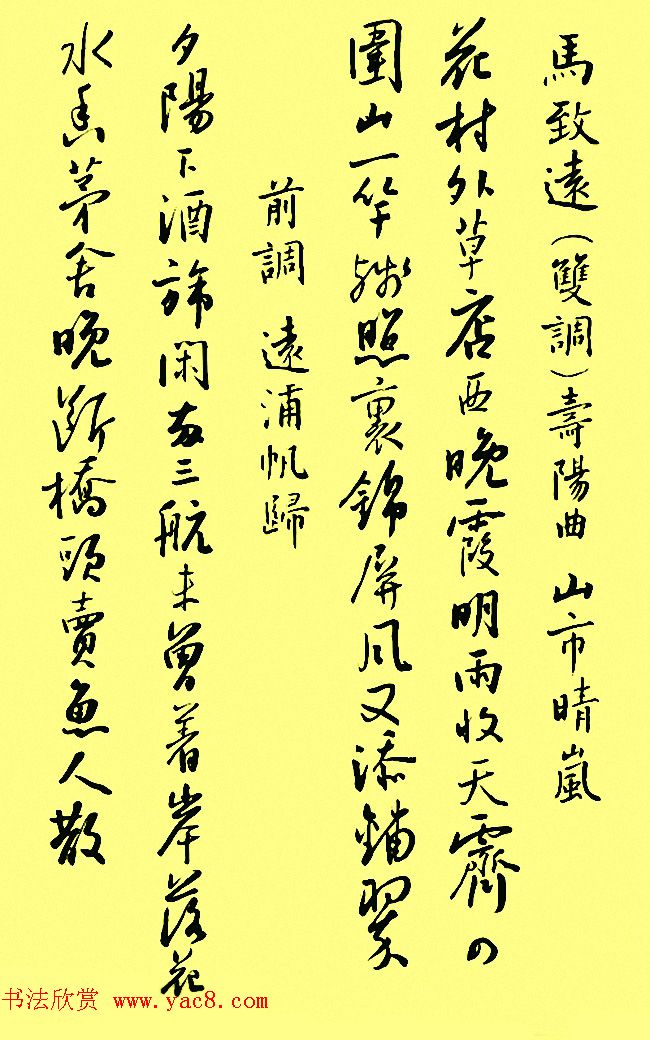 馬致遠（雙調）壽陽曲 山市晴嵐
花村外草店西晚霞明雨收天霽四
圍山一竿殘照裏錦屏風又添鋪翠
前調 遠浦帆歸
夕陽下酒旆閑兩三航未曾着岸落花
水香茅舍晚断橋頭賣魚人散
书法欣赏 www.yac8.com